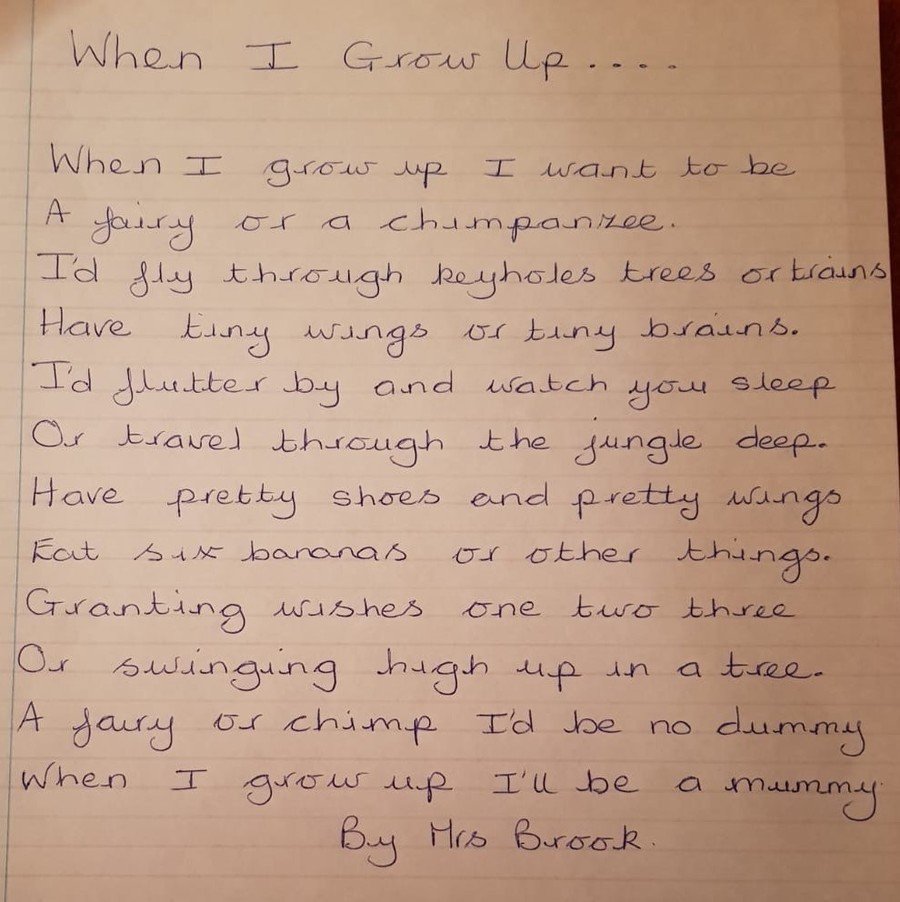 When I Grow Up....
When I grow up I want to be
A fairy or a chimpanzee.
I'd fly through keyholes trees or trains
Have tiny wings or tiny brains.
I'd flutter by and watch you sleep
Or travel through the jungle deep.
Have pretty shoes and pretty wings
Eat six bananas or other things.
Granting wishes one two three
Or swinging high up in a tree.
A fairy or chimp I'd be no dummy
When I grow up I'll be a mummy.
By Mrs Brook.